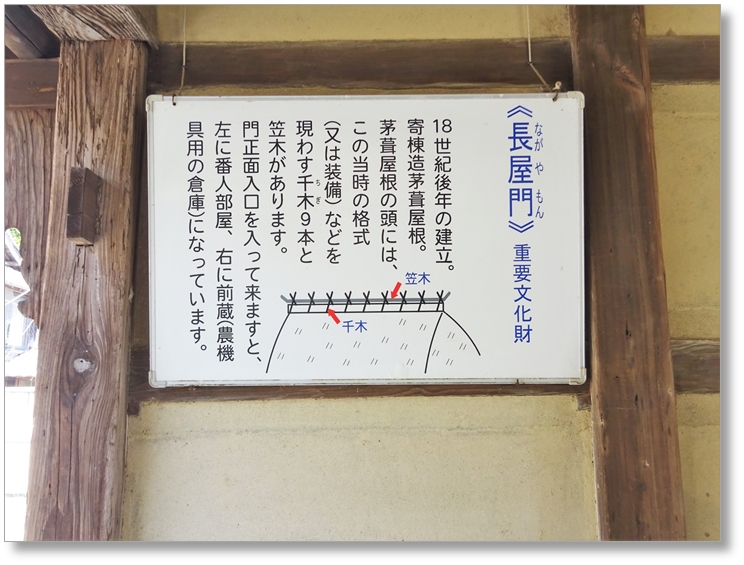 《長屋門》重要文化財
ながやもん
18世紀後年の建立。
寄棟造茅葺屋根。
茅葺屋根の頭には、
この当時の格式
(又は装備)などを
現わす千木9本と
ちぎ
笠木があります。
門正面入口を入って来ますと、
左に番人部屋、右に前蔵(農機
具用の倉庫)になっています。
笠木
千木